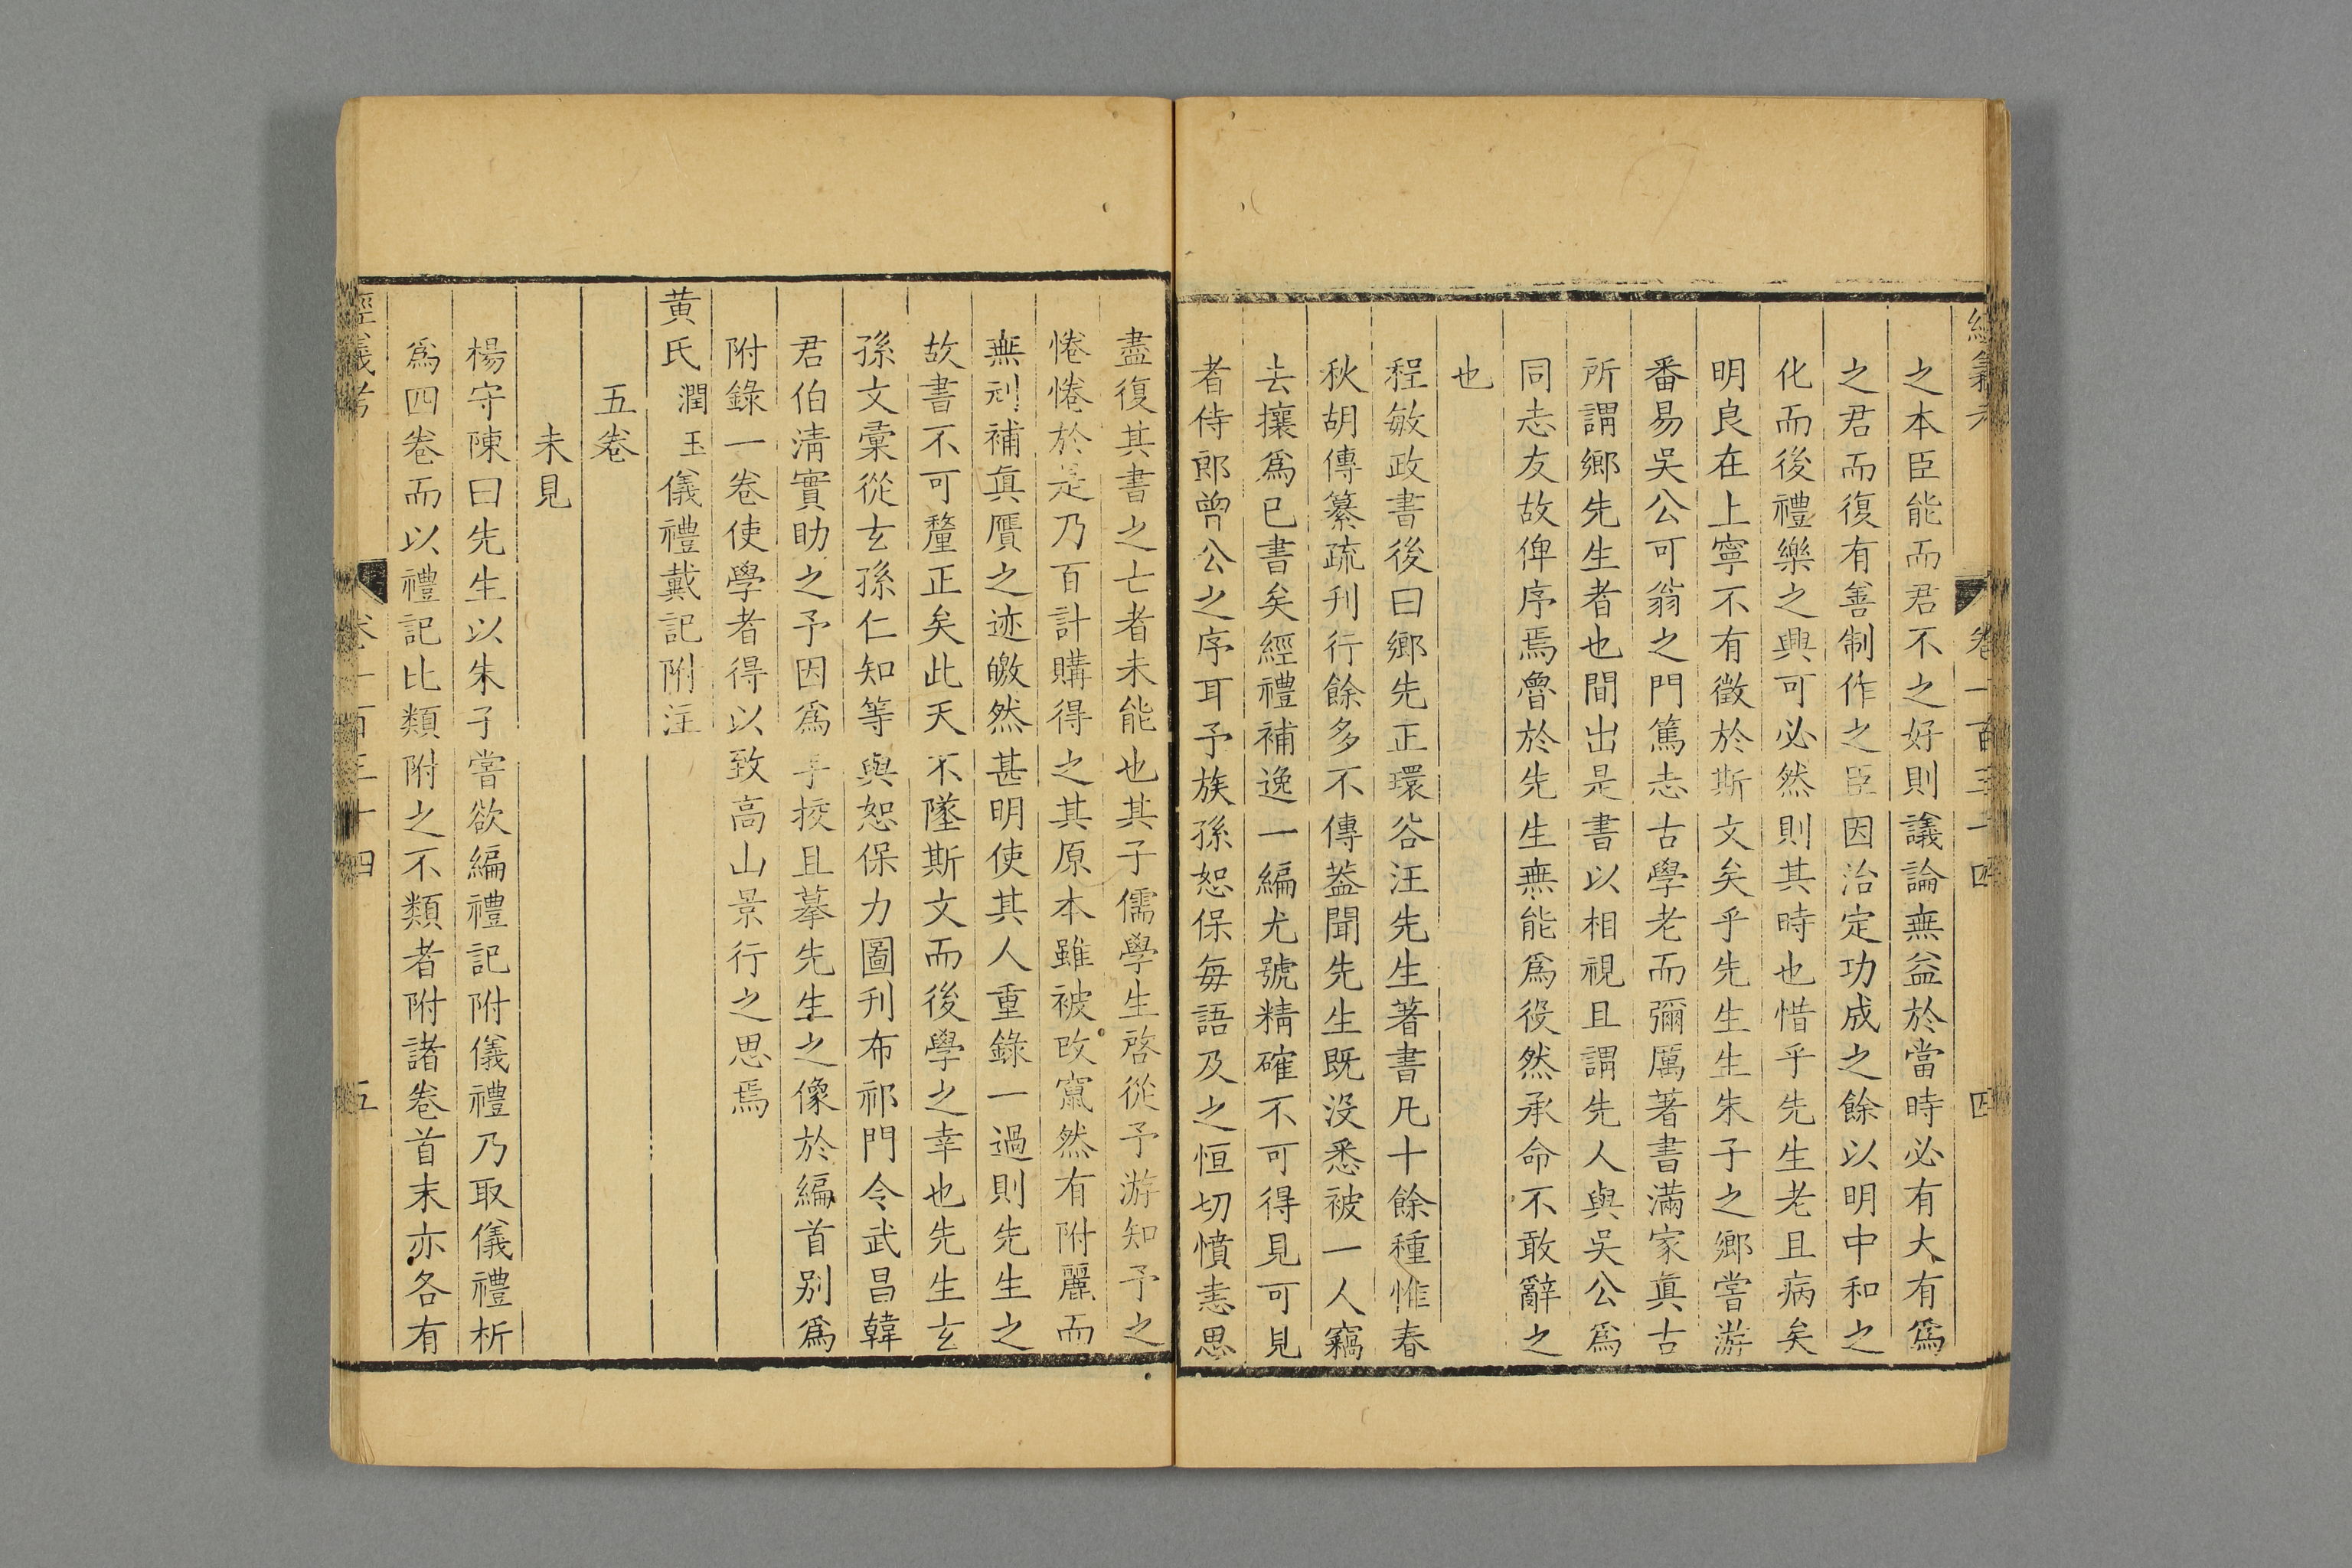 經義考 卷一百三十四 四
之本臣能而君不之好則議論無益於當時必有大有爲
之君而復有善制作之臣因治定功成之餘以明中和之
化而後禮樂之興可必然則其時也惜乎先生老且病矣
明良在上寧不有徵於斯文矣乎先生生朱子之鄉嘗游
番昜吳公可翁之門篤志古學老而彌厲著書滿家眞古
所謂鄉先生者也間出是書以相視且謂先人與吳公爲
同志友故俾序焉魯於先生無能爲役然承命不敢辭之
也
程敏政書後曰鄉先正環谷汪先生著書凡十餘種惟春
秋胡傳纂疏刊行餘多不傳葢聞先生既没悉被一人竊
去攘爲已書矣經禮補逸一編尤號精確不可得見可見
者侍郎曾公之序耳予族孫恕保每語及之恒切憤恚思
盡復其書之亡者未能也其子儒學生啓從予游知予之
惓惓於是乃百計購得之其原本雖被攺竄然有附麗而
無刓補眞贋之迹皦然甚明使其人重錄一過則先生之
故書不可釐正矣此天不墜斯文而後學之幸也先生玄
孫文彙從玄孫仁知等與恕保力圖刊布祁門令武昌韓
君伯淸實助之予因爲手挍且摹先生之像於編首别爲
附錄一卷使學者得以致高山景行之思焉
黄氏潤玉儀禮戴記附注
五卷
未見
楊守陳曰先生以朱子嘗欲編禮記附儀禮乃取儀禮析
爲四卷而以禮記比類附之不類者附諸卷首末亦各有
經義考 卷一百三十四 五